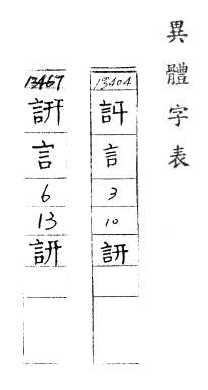 異體字表
13404
言
3
10
訮
13467
訮
言
6
13
訮